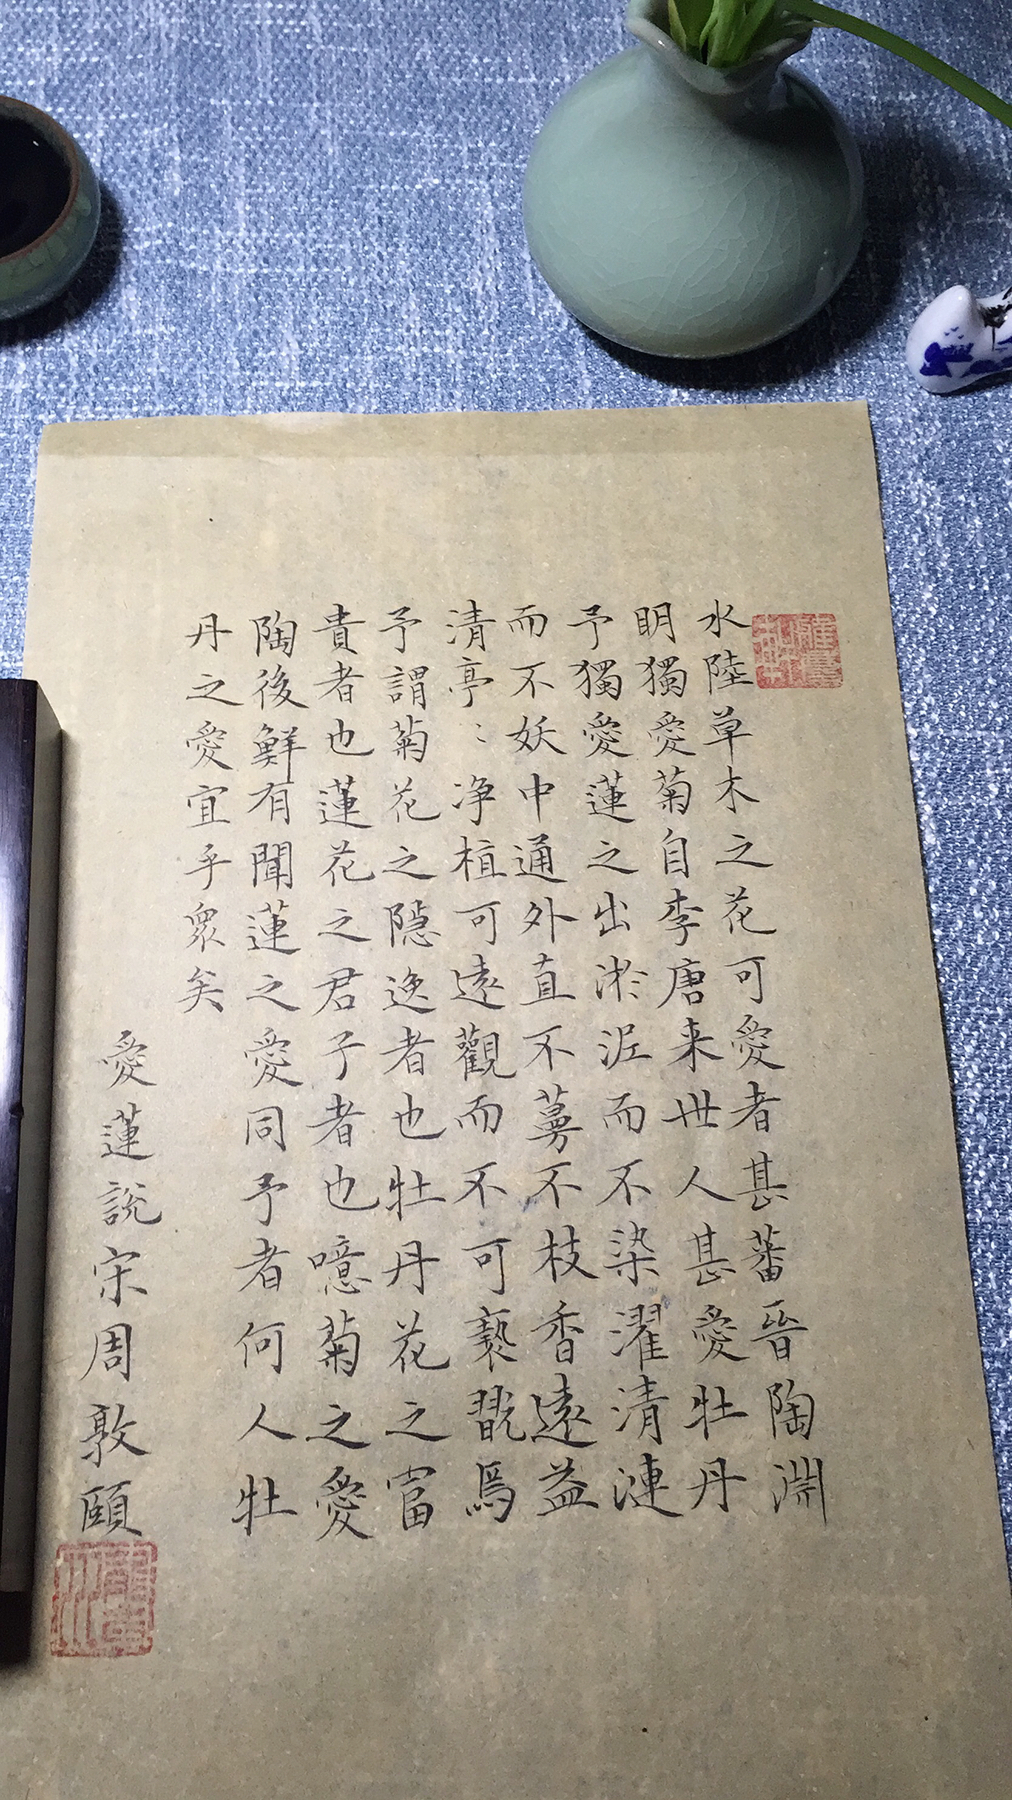 水陸草木之花可愛者甚蕃晉陶淵
明獨愛菊自李唐来世人甚愛牡丹
予獨愛蓮之出淤泥而不染濯清漣
而不妖中通外直不蔓不枝香遠益
清亭⺀净植可遠觀而不可褻翫焉
予謂菊花之隠逸者也牡丹花之富
貴者也蓮花之君子者也噫菊之愛
陶後鮮有聞蓮之愛同予者何人牡
丹之愛宜乎衆矣
愛蓮說宋周敦頤